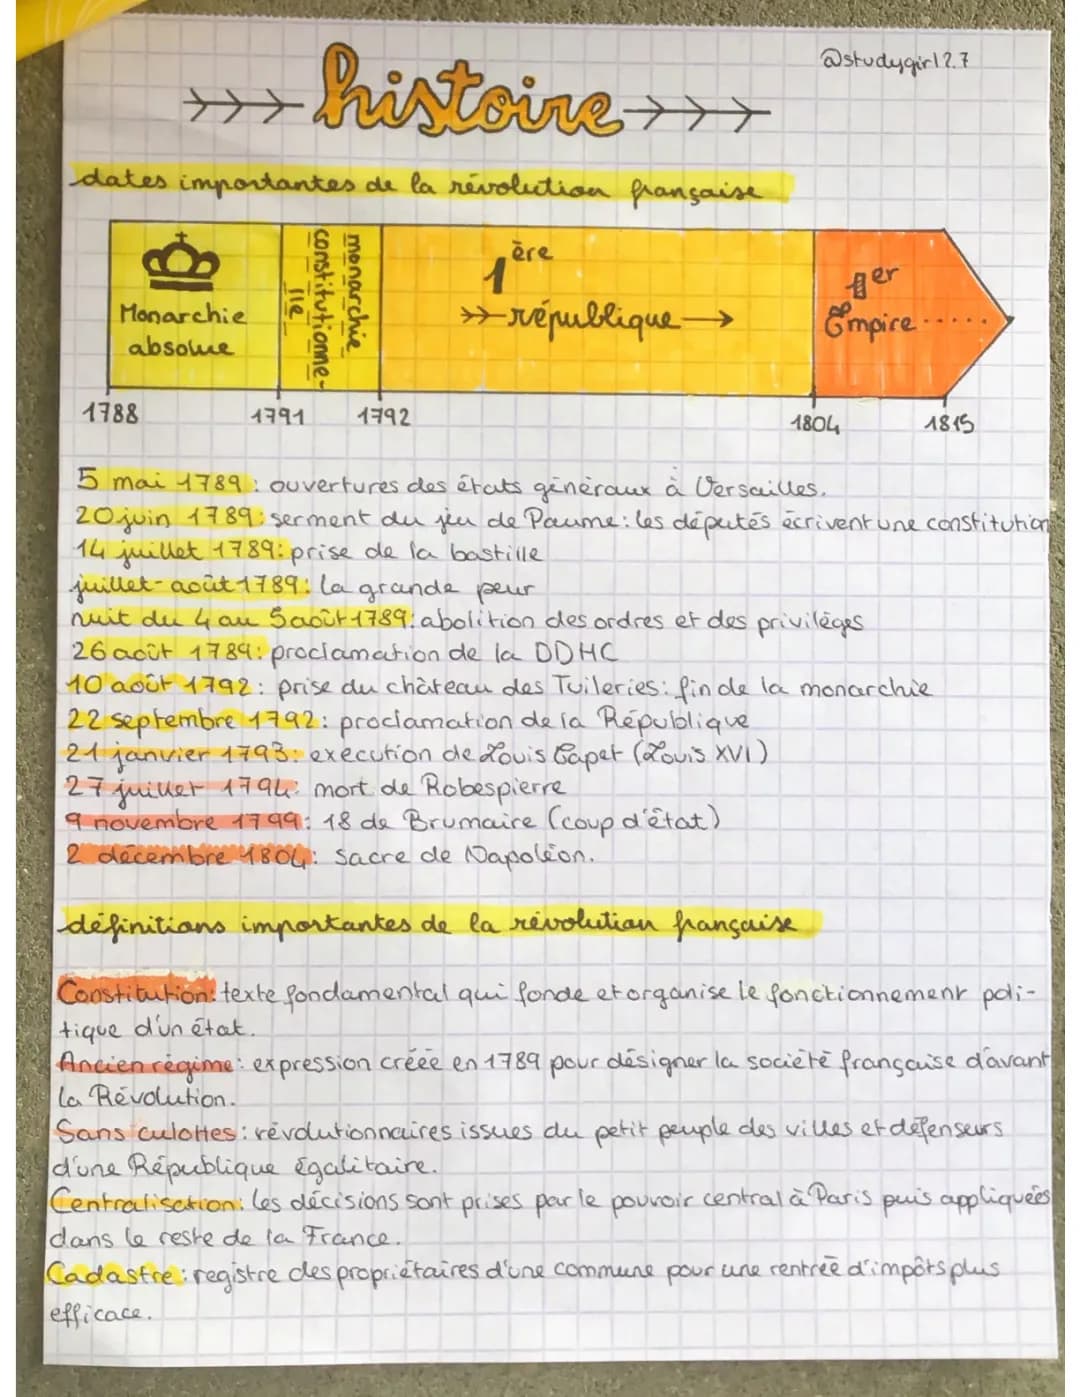 @studygirl2.7
histoire
dates importantes de la révolution française
Monarchie
absolue
monarchie
constitutionne-
lle
1ère
république
1er
Empire.....
1788
1791
1792
1804
1815
5 mai 1789 : ouvertures des états généraux à Versailles.
20 juin 1789 : serment du jeu de Paume : les députés écrivent une constitution
14 juillet 1789 : prise de la bastille
juillet-août 1789 : la grande peur
nuit du 4 au 5 août 1789 : abolition des ordres et des privilèges
26 août 1789 : proclamation de la DDHC
10 août 1792 : prise du château des Tuileries : fin de la monarchie
22 septembre 1792 : proclamation de la République
21 janvier 1793 : exécution de Louis Capet (Louis XVI)
27 juillet 1794 : mort de Robespierre
9 novembre 1799 : 18 de Brumaire (coup d'état)
2 décembre 1804 : sacre de Napoléon.
définitions importantes de la révolution française
Constitution : texte fondamental qui fonde et organise le fonctionnement poli-
tique d'un état.
Ancien régime : expression créée en 1789 pour désigner la société française d'avant
la Révolution.
Sans culottes : révolutionnaires issues du petit peuple des villes et défenseurs
d'une République égalitaire.
Centralisation : les décisions sont prises par le pouvoir central à Paris puis appliquées
dans le reste de la France.
Cadastre : registre des propriétaires d'une commune pour une rentrée d'impôts plus
efficace.